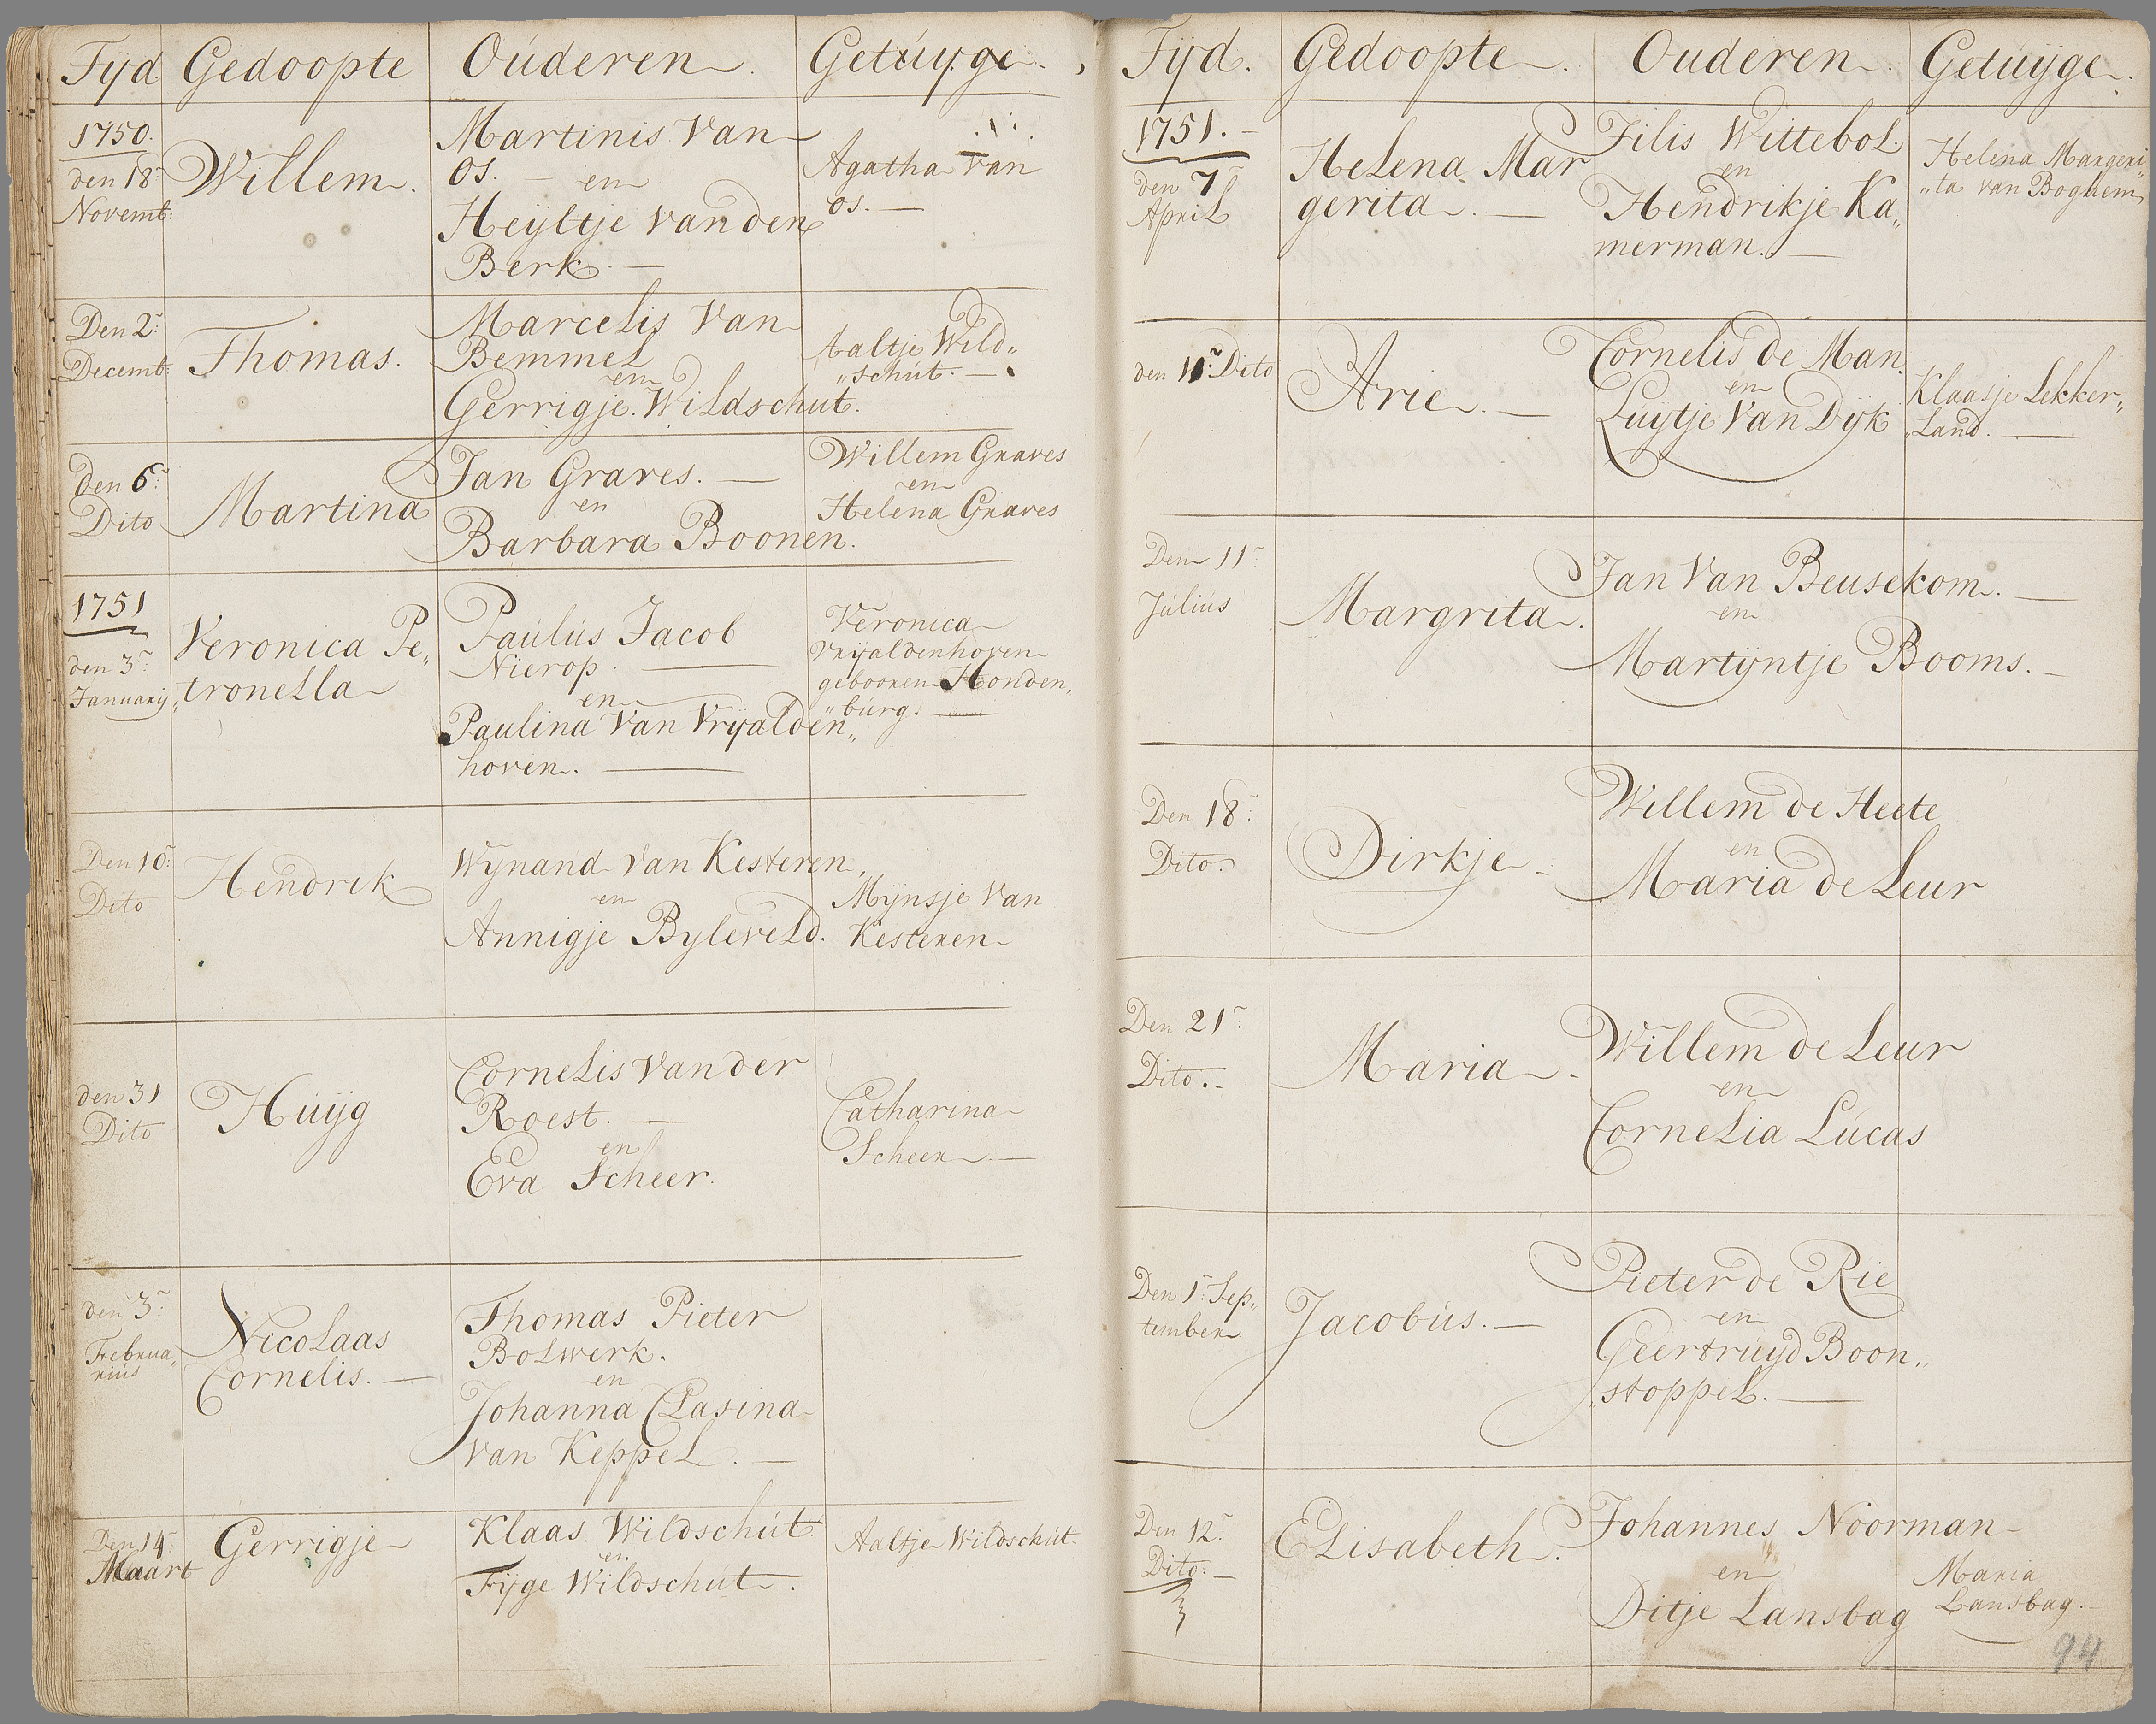 Tyd Gedoopte Oúderen. Getúyge.
1750.
den 18:
Novemb:
Willem.
Martinis Van
Os. — en
Heyltje van den
Berk. —
Agatha van
os. —
Den 2:
Decemb:
Thomas.
Marcelis Van
Bemmel
en
Gerrigje Wildschut.
Aaltje Wild„
„schút. —
den 6:
Dito
Martina
Jan Graves. —
en
Barbara Boonen.
Willem Graves
en
Helena Graves
1751
den 3:
Januarij
Veronica Pe„
„tronella
Paúlús Jacob
Nierop. —
en
Paulina Van Vrijalden„
hoven. —
Veronica
Vrijaldenhoven
gebooren Honden„
„búrg. —
Den 10:
Dito
Hendrik
Wynand van Kesteren
en
Annigje Byleveld.
Mynsje Van
Kesteren
den 31
Dito
Húyg
Cornelis Van der
Roest. —
en
Eva Scheer.
Catharina
Scheer. —
den 3:
Februa„
riús
Nicolaas
Cornelis. —
Thomas Pieter
Bolwerk.
en
Johanna Clasina
van Keppel. —
Den 14:
Maart
Gerrigje
Klaas Wildschút
en
Fyge Wildschút.
Aaltje Wildschút.
Tyd. Gedoopte. Ouderen. Getuyge.
1751. -
den 7
April
Helena Mar
gerita. —
Jilis Wittebol.
en
Hendrikje Ka„
merman. —
Helena Margeri„
„ta van Boghem
den 11: Dito
Arie. —
Cornelis de Man
en
Luytje Van Dyk
Klaasje Lekker„
„Land. —
Den 11:
Júliús
Margrita.
Jan Van Beusekom. —
en
Martyntje Booms. -
Den 18:
Dito.
Dirkje -
Willem de Heete
en
Maria de Leur
Den 21:
Dito. -
Maria -
Willem de Leur
en
Cornelia Lúcas
Den 1: Sep„
tember
Jacobús. —
Pieter de Rie
en
Geertrúyd Boon„
„stoppel. —
Den 12:
Dito. -
Elisabeth.
Johannes Noorman
en
Ditje Lansbag
Maria
Lansbag.
94